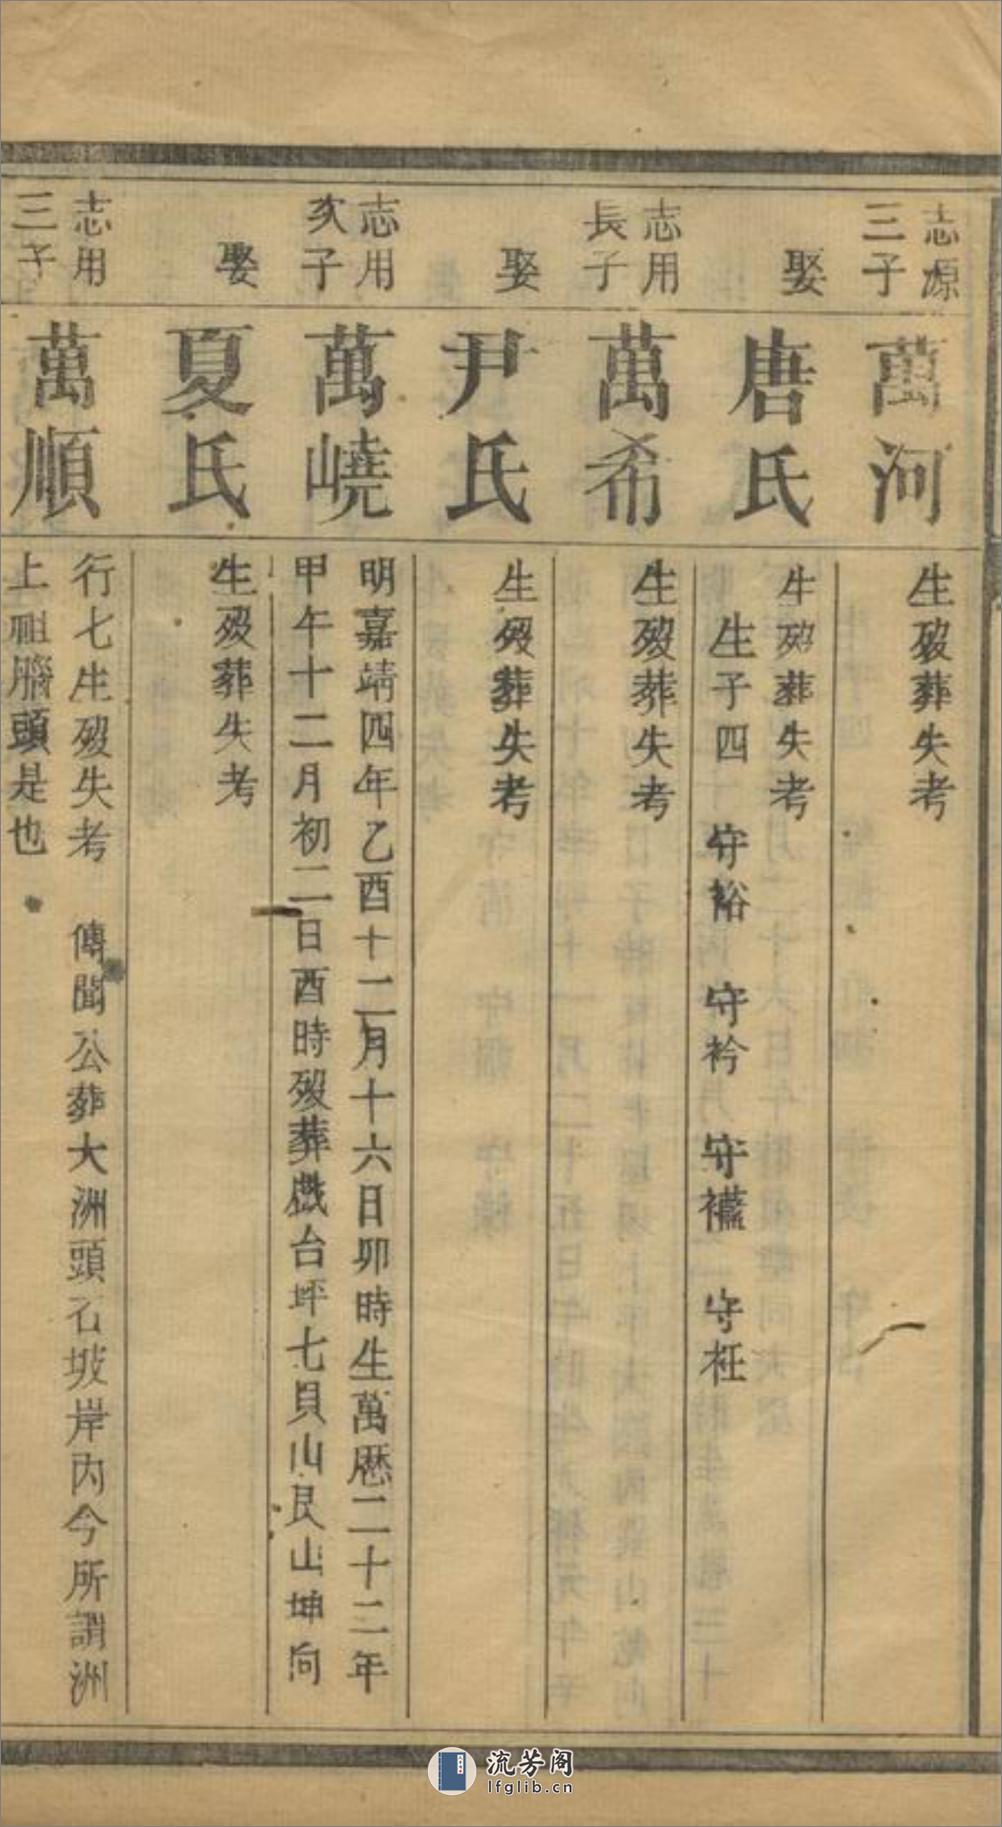 志源
三子
萬河
生歿葬失考
娶
唐氏
生歿葬失考
生子四 守裕 守衿 守襺 守枉
志用
長子
萬希
生歿葬失考
娶
尹氏
生歿葬失考
志用
次子
萬嶢
明嘉靖四年乙酉十二月十六日卯時生萬厯二十二年
甲午十二月初二日酉時歿葬戯台坪七貝山艮山坤向
娶
夏氏
生歿葬失考
志用
三子
萬順
行七生歿失考 傳聞公葬大洲頭石坡岸內今所謂洲
上祖牓頭是也
流芳阁
lfglib.cn